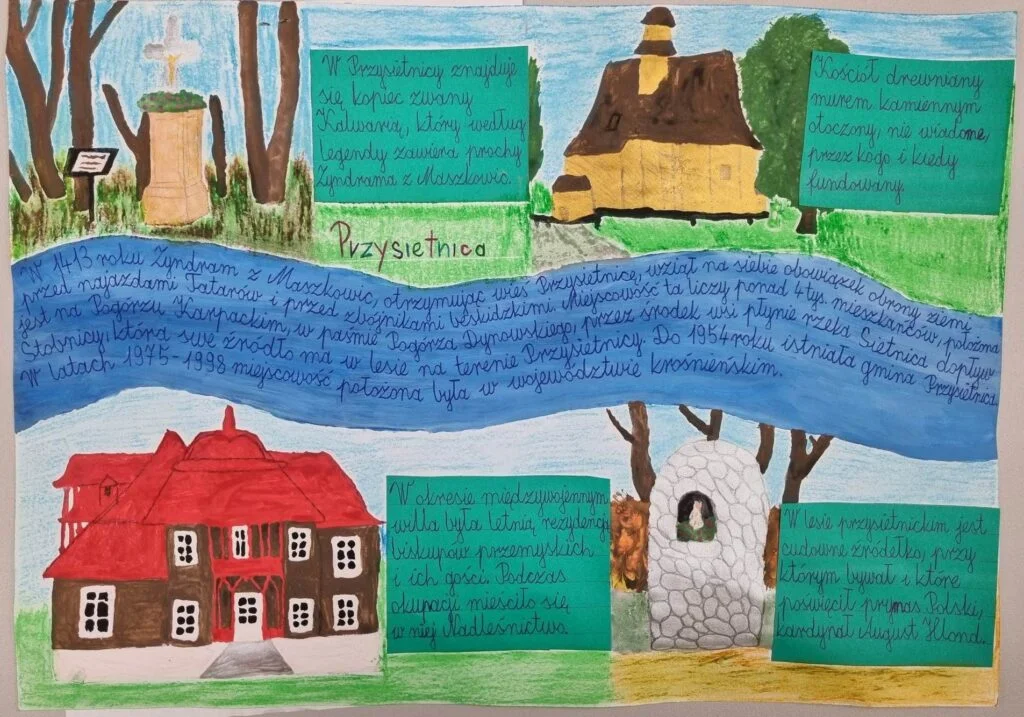 W Przysietnicy znajduje
się kopiec zwany
Kalwaria, który według
legendy zawiera prochy
Żyndrama z Maszkowic.
Kościół drewniany
murem kamiennym
otoczony, nie wiadome,
przez kogo i kiedy
fundowany.
Przysietnica
W 1413 roku Żyndram z Maszkowic, otrzymując wieś Przysietnicę, wziął na siebie obowiązek obrony ziemi
przed najazdami Tatarów i przed zbójnikami beskidzkimi. Miejscowość ta liczy ponad 4 tys. mieszkańców, położona
jest na Pogórzu Karpackim, w paśmie Pogórza Dynowskiego, przez środek wsi płynie rzeka Sietnica dopływ
Stobnicy, która swe źródło ma w lesie na terenie Przysietnicy. Do 1954 roku istniała gmina Przysietnica.
W latach 1975-1998 miejscowość położona była w województwie krośnieńskim.
W okresie międzywojennym
willa była letnią rezydencją
biskupów przemyskich
i ich gości. Podczas
okupacji mieściło się
w niej Nadleśnictwo.
W lesie przysietnickim jest
cudowne źródełko, przy
którym bywał i które
poświęcił prymas Polski,
kardynał August Hlond.